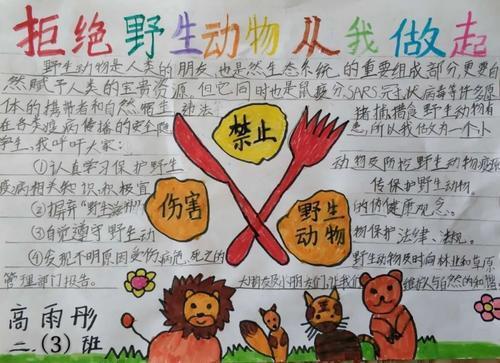 拒绝野生动物从我做起
野生动物是人类的朋友,也是然生态系统的重要组成部分,更是自
然赋予人类的宝贵资源。但它同时也是鼠疫
SARS冠状病毒等许多
体的携带者和自然宿主 违法
猎捕猎食野生动物有
在各类疫病传播的安全隐
患,所以我做为一个小
学生,我呼吁大家:
①认真学习保护野生
动物及防控野生动物疫源
疫病相关知识,积极宣
传保护野生动物。
②摒弃"野生滋补"
的伪健康观念。
③自觉遵守野生动
物保护法律、法规。
④发现不明原因受伤病危、死亡的
野生动物及时向林业和草原
管理部门报告。
大朋友及小朋友们,让我们
与自然的和谐。
禁止
伤害
野生
动物
高雨彤
二.(3)班